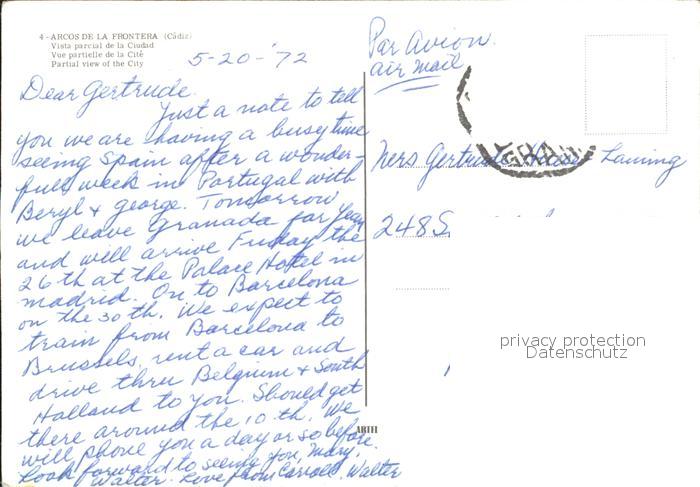 4-ARCOS DE LA FRONTERA (Cádiz)
Vista parcial de la Ciudad
Vue partielle de la Cité
Partial view of the City
5-20-'72
Dear Gertrude.
Just a note to tell
you we are having a busy time
seeing Spain after a wonder-
full week in Portugal with
Beryl & George. Tomorrow
we leave Granada for
and will arrive Friday the
26th at the Palace Hotel in
madrid. On to Barcelona
on the 30th. We expect to
train from Barcelona to
Brussels, rent a car and
drive thru Belgium & South
Holland to you. Should get
there around the 10th. We
will phone you a day or so before.
Look forward to seeing you, Mary,
Walter. Love from Carroll, Walter
ARTEI
Par Avion.
air mail
GRA
Mers Gertrude Laning
248 S
privacy protection
Datenschutz